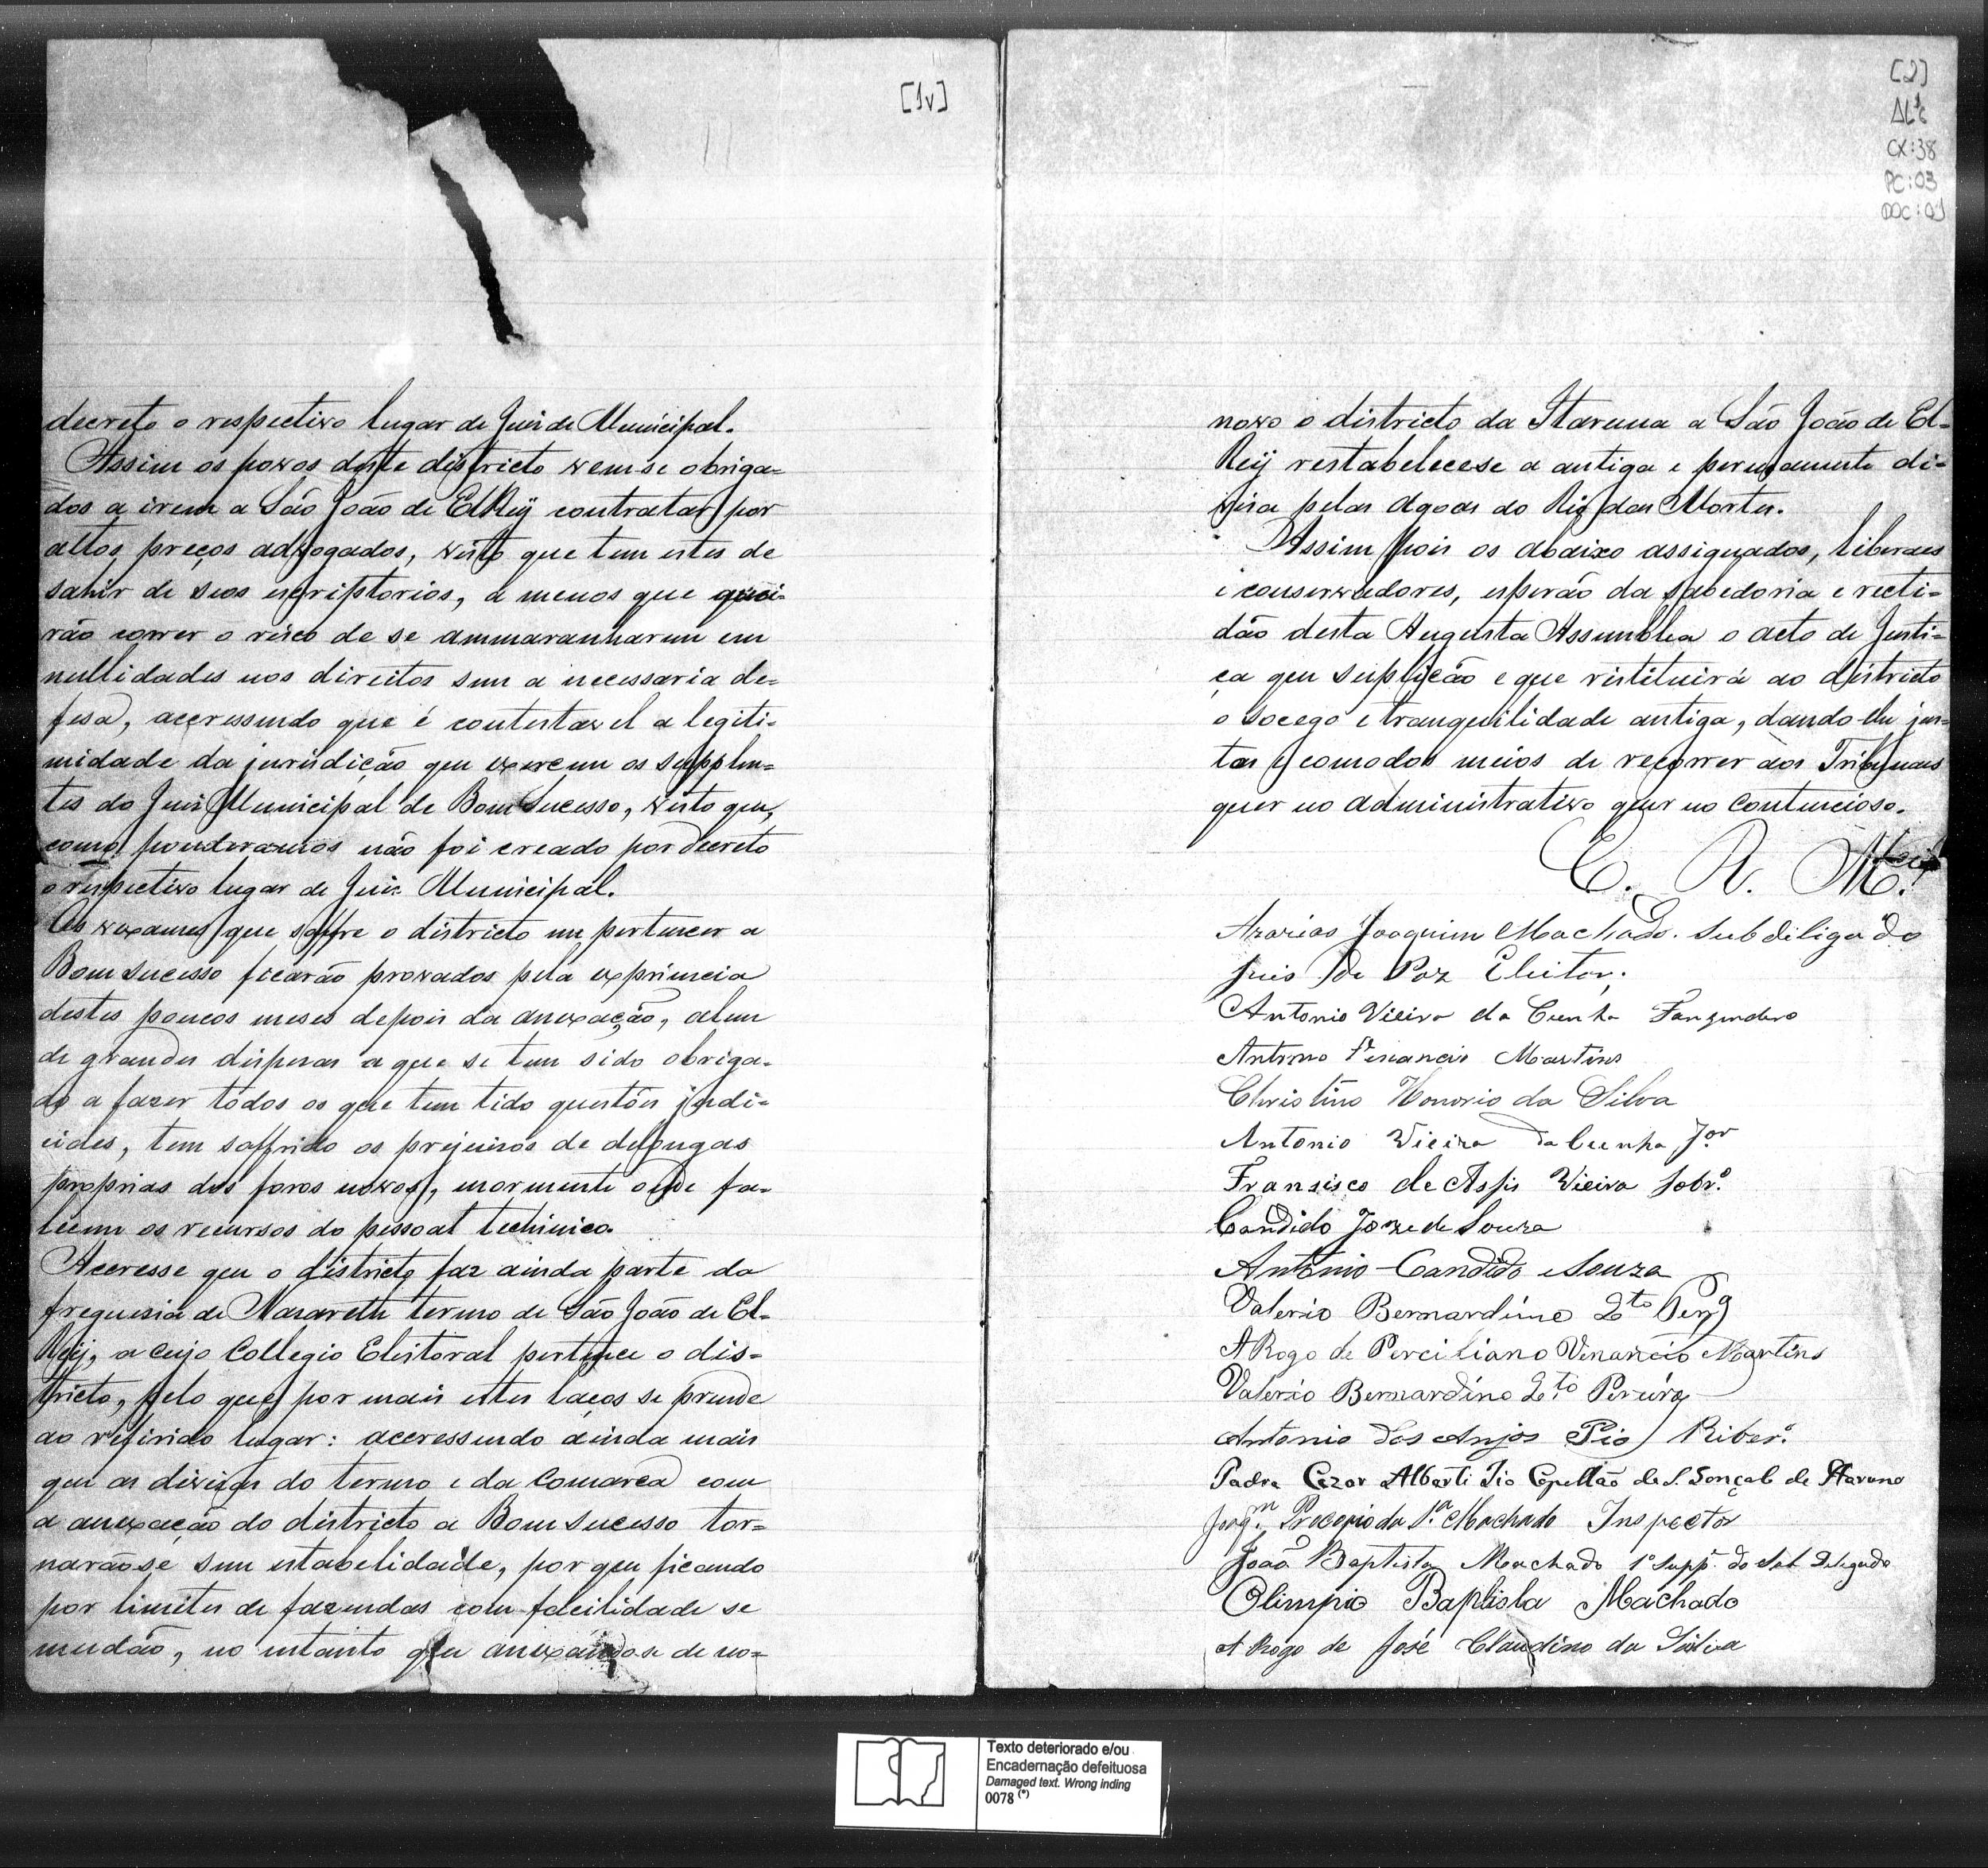 [1v]
decreto o respectivo lugar de Juis de Municipal.
Assim os povos deste districto vem-se obriga=
dos a irem a São João de ElReÿ contratar por
altos preços advogados, visto que tem estes de
sahir de seos escriptorios, a menos que quei=
rão correr o risco de se ammaranharem em
nullidades nos direitos sem a necessaria de=
fesa, accressendo que é contestavel a legiti=
midade da jurisdição que exercem os supplen=
tes do Juis Municipal de Bom Sucesso, visto que,
como ponderamos não foi creado por decreto
o respectivo lugar de Juis Municipal.
Os vexames que soffre o districto em pertencer a
Bom Sucesso ficarão provados pela expriencia
destes poucos meses depois da anexação, alem
de grandes dispesas a que se tem sido obriga=
do a fazer todos os que tem tido questões judi=
ciaes, tem soffrido os prejuisos de delongas
proprias dos foros novos, mormente onde fa=
lecem os recursos do pessoal techinico.
Accresse que o districto faz ainda parte da
freguesia de Nazareth termo de São João de El=
Reÿ, a cujo Collegio Eleitoral pertence o dis=
tricto, pelo que por mais estes laços se prende
ao referido lugar: accressendo ainda mais
que as divisas do termo e da Comarca com
a anexação do districto a Bom Sucesso tor=
narão-se sem estabelidade, por que ficando
por limites de fazendas com facilidade se
mudão, no entanto que anexando-se de no=
[2]
AL1
CX:38
PC:03
DOC:01
novo o districto da Itaruna a São João de El=
Reÿ restabelecese a antiga e permanente di=
visa pelas Agoas do Rio das Mortes.
Assim pois os abaixo assignados, liberaes
e conservadores, esperão da sabedoria e recti=
dão desta Augusta Assemblea o acto de Justi=
ça que suplicão e que restituirá ao districto
o socego e tranquilidade antiga, dando-lhe jus=
tos e comodos meios de recorrer aos Tribunaes
quer no administrativo quer no contencioso.
E. R. M.cê
Azarias Joaquim Machado. Subdeligado
Juis de Paz Eleitor.
Antonio Vieira da Cunha Fanzendero
Antonio Venancio Martins
Christino Honorio da Silva
Antonio Vieira da Cunha J.or
Fransisco de Assis Vieira Sobr.º
Candido Joze de Souza
Antonio Candido Souza
Valerio Bernardino
A Rogo de Perciliano Venancio Martins
Valerio Bernardino Pereira
Antonio dos Anjos Pio Riber.º
Padre Cezar Alberti Pio Capellão de S. Gonçalo de Itaruna
Joaq.m Procopio da S.ª Machado Inspector
João Baptista Machado 1º Supp.e do Sub Delegado
Olimpio Baptista Machado
A Rogo de José Claudino da Silva
Texto deteriorado e/ou
Encadernação defeituosa
Damaged text. Wrong inding
0078 (*)